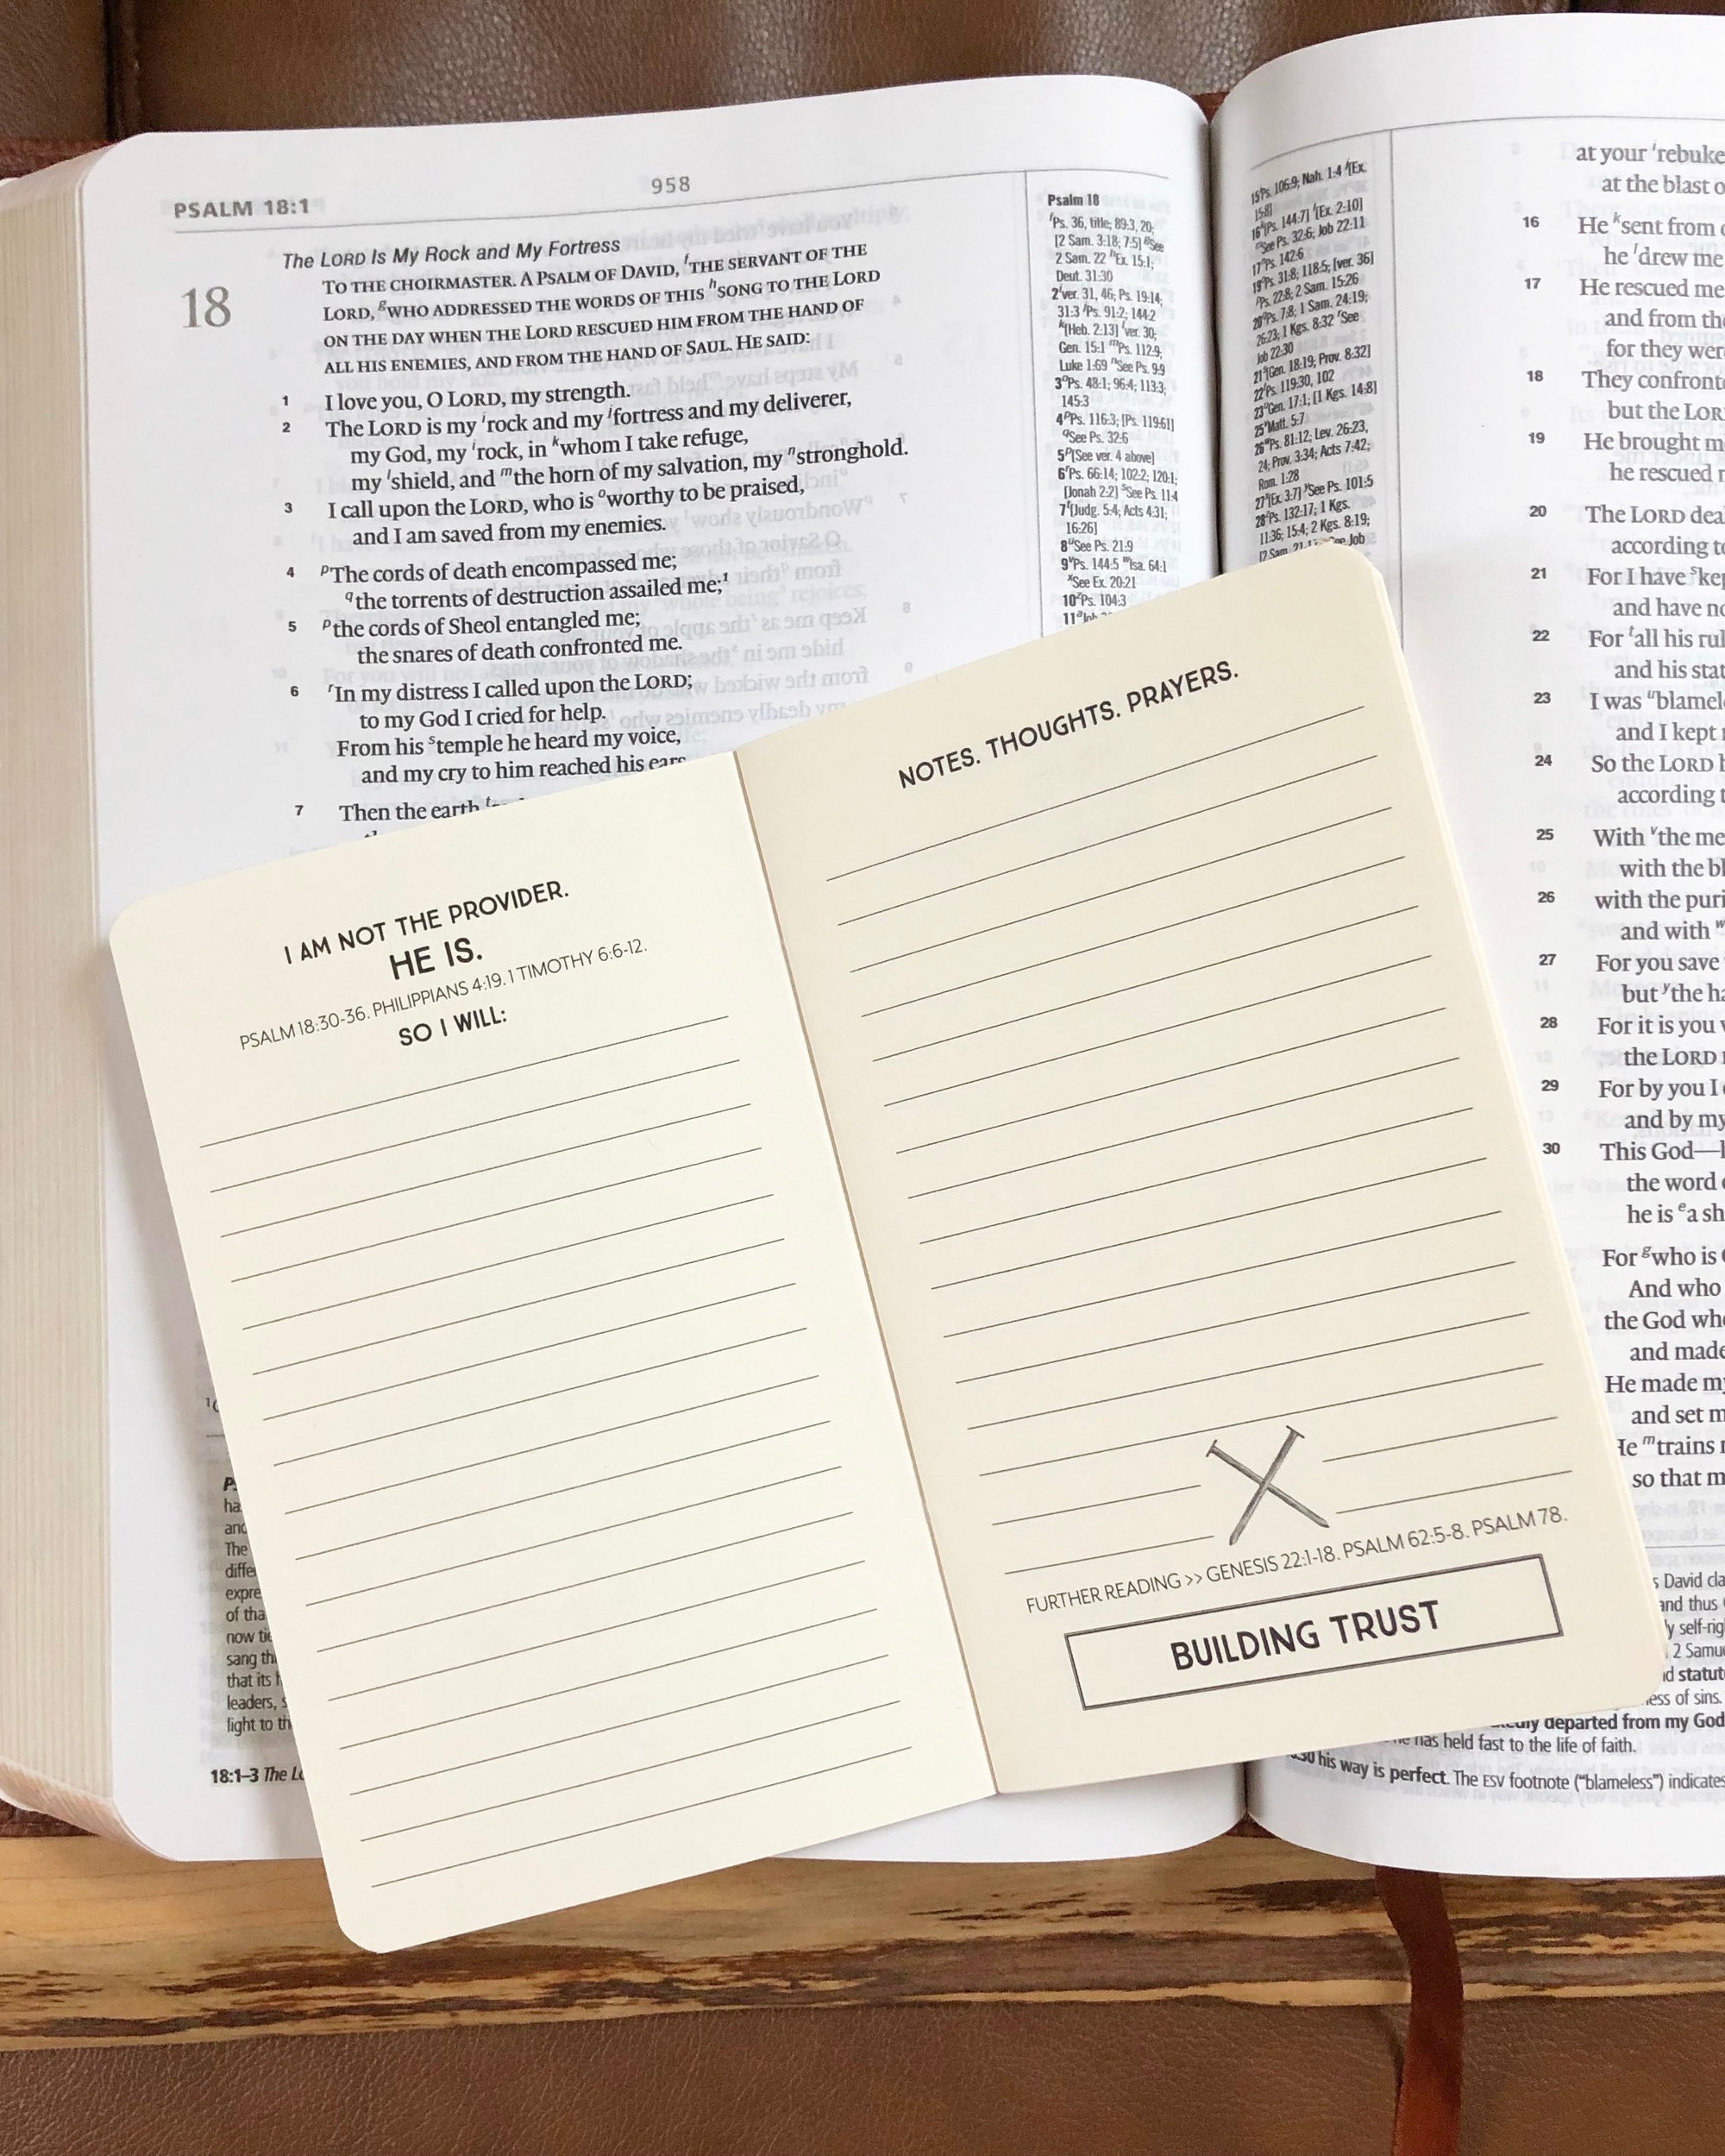 PSALM 18:1
958
The LORD Is My Rock and My Fortress
18
TO THE CHOIRMASTER. A PSALM OF DAVID, fTHE SERVANT OF THE
LORD, gWHO ADDRESSED THE WORDS OF THIS hSONG TO THE LORD
ON THE DAY WHEN THE LORD RESCUED HIM FROM THE HAND OF
ALL HIS ENEMIES, AND FROM THE HAND OF SAUL. HE SAID:
1 I love you, O LORD, my strength.
2 The LORD is my irock and my jfortress and my deliverer,
my God, my irock, in kwhom I take refuge,
my lshield, and mthe horn of my salvation, my nstronghold.
3 I call upon the LORD, who is oworthy to be praised,
and I am saved from my enemies.
4 pThe cords of death encompassed me;
qthe torrents of destruction assailed me;1
5 pthe cords of Sheol entangled me;
the snares of death confronted me.
6 rIn my distress I called upon the LORD;
to my God I cried for help.
From his stemple he heard my voice,
and my cry to him reached his ears
7 Then the earth
Psalm 18
fPs. 36, title; 89:3, 20;
[2 Sam. 3:18; 7:5] gSee
2 Sam. 22 hEx. 15:1;
Deut. 31:30
2iver. 31, 46; Ps. 19:14;
31:3 jPs. 91:2; 144:2
k[Heb. 2:13] lver. 30;
Gen. 15:1 mPs. 112:9;
Luke 1:69 nSee Ps. 9:9
3oPs. 48:1; 96:4; 113:3;
145:3
4pPs. 116:3; [Ps. 119:61]
qSee Ps. 32:6
5p[See ver. 4 above]
6rPs. 66:14; 102:2; 120:1;
[Jonah 2:2] sSee Ps. 11:4
7t[Judg. 5:4; Acts 4:31;
16:26]
8uSee Ps. 21:9
9vPs. 144:5 wIsa. 64:1
xSee Ex. 20:21
10zPs. 104:3
15iPs. 106:9; Nah. 1:4 j[Ex.
15:8]
16kPs. 144:7] l[Ex. 2:10]
mSee Ps. 32:6; Job 22:11
17nPs. 142:6
19oPs. 31:8; 118:5; [ver. 36]
pPs. 22:8; 2 Sam. 15:26
20qPs. 7:8; 1 Sam. 24:19;
26:23; 1 Kgs. 8:32 rSee
Job 22:30
21s[Gen. 18:19; Prov. 8:32]
22tPs. 119:30, 102
23uGen. 17:1; [1 Kgs. 14:8]
25vMatt. 5:7
26wPs. 81:12; Lev. 26:23,
24; Prov. 3:34; Acts 7:42;
Rom. 1:28
27x[Ex. 3:7] ySee Ps. 101:5
28zPs. 132:17; 1 Kgs.
11:36; 15:4; 2 Kgs. 8:19;
at your irebuke
at the blast
16 He ksent from
he ldrew me
17 He rescued me
and from
for they
18 They
but the
19 He brought
he rescued
20 The LORD
according
21 For I have
and have
22 For tall his
and his
23 I was
and I kept
24 So the LORD
according
25 With vthe
with the
26 with the
and with
27 For you save
but ythe
28 For it is you
the LORD
29 For by you I
and by my
30 This God—
the word
he is ea
For gwho is
And who
the God
and made
He made
and set
mtrains
so that
I AM NOT THE PROVIDER.
HE IS.
PSALM 18:30-36. PHILIPPIANS 4:19. 1 TIMOTHY 6:6-12.
SO I WILL:
NOTES. THOUGHTS. PRAYERS.
FURTHER READING >> GENESIS 22:1-18. PSALM 62:5-8. PSALM 78.
BUILDING TRUST
and
The
of
now
sang
that its
leaders,
light to
18:1–3 The
David
and thus
2
of sins.
departed from my God
has held fast to the life of faith.
his way is perfect. The ESV footnote (“blameless”) indicates